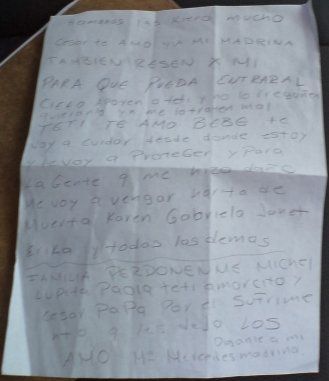 Hermanas las kiero mucho
Cesar te AMO YA MI MADRINA
TAMBIEN RESEN X MI
PARA QUE PUEDA ENTRAR AL
CIELO apoyen a teti y no lo regañen
ya me lo traten mal
TETI TE AMO BEBE te
voy a cuidar desde donde estoy
y le voy a Proteger y Para
La Gente q me hizo daño
Me voy a vengar harta de
Muerta Karen Gabriela Janet
Erika y todas las demas
FAMILIA PERDONENME MICHEL
LUPITA Paola teti amorcito y
Cesar PAPA Por el Sufrime
nto q les dejo LOS
AMO Ma Mercedes madrina
Diganle a mi